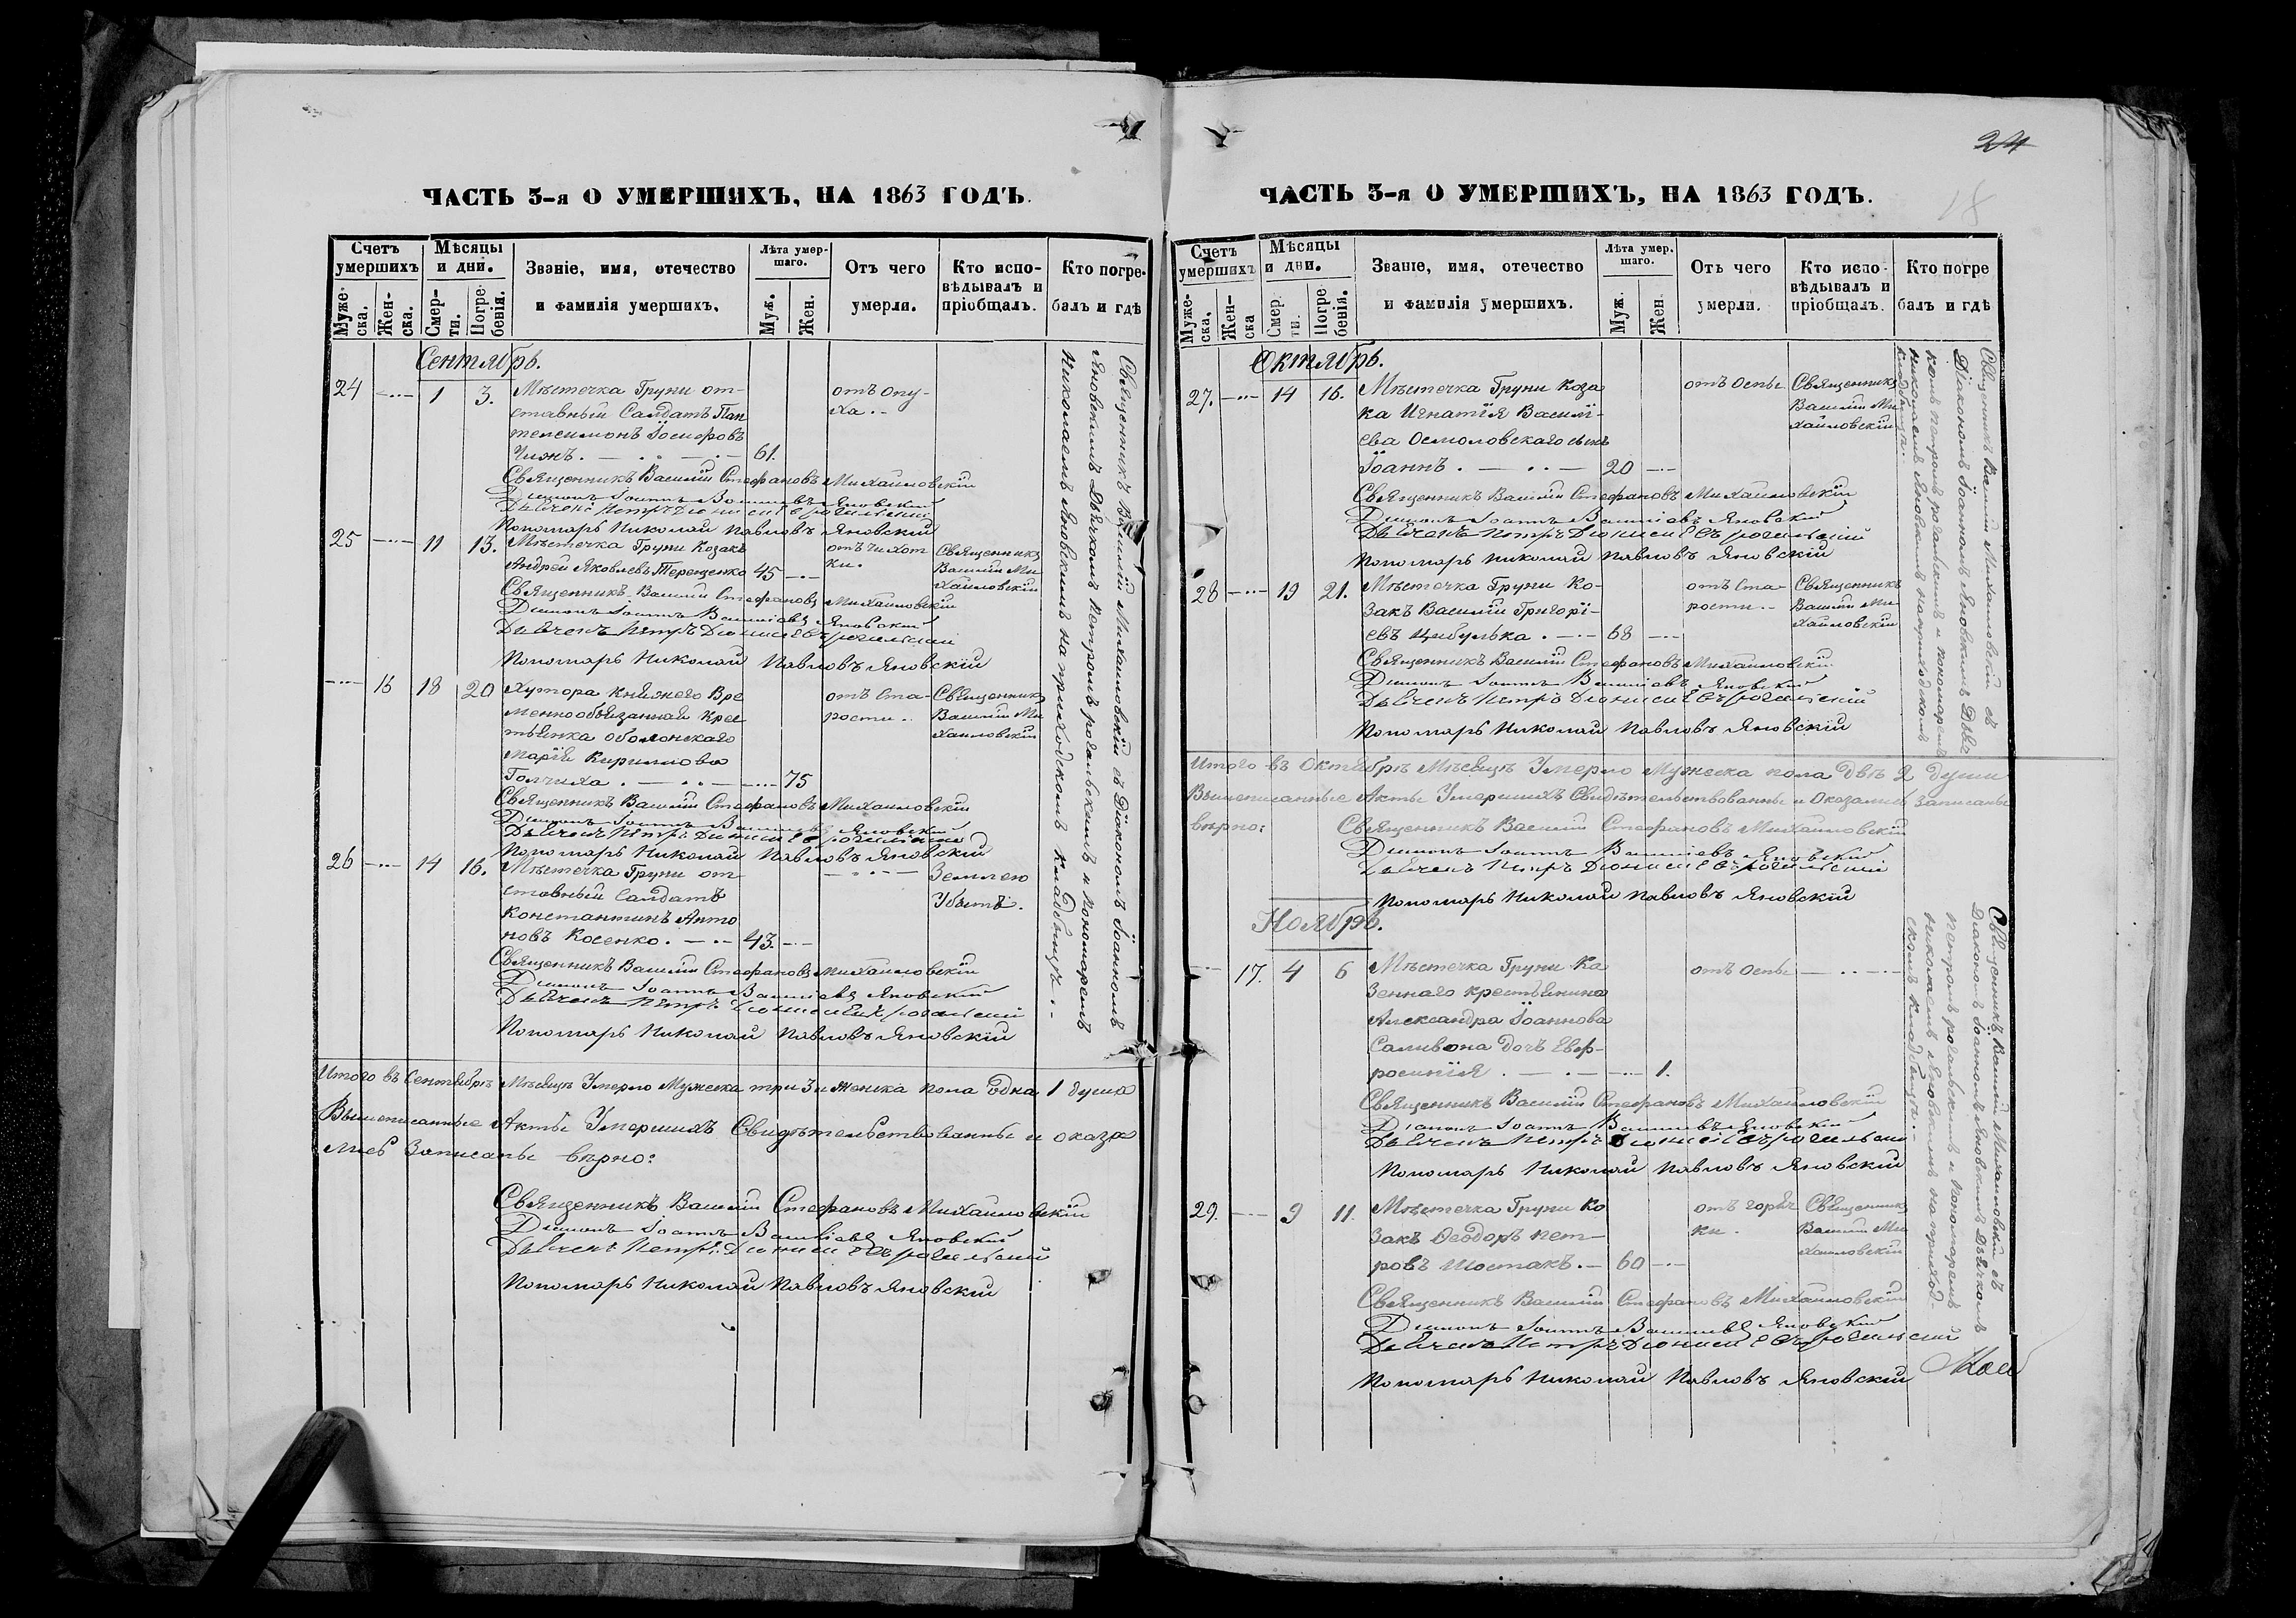 ЧАСТЬ 3-я О УМЕРШИХЪ, НА 1863 ГОДЪ.
Счетъ умершихъ
Мѣсяцы и дни.
Званіе, имя, отечество и фамилія умершихъ.
Лѣта умер-шаго.
Отъ чего умерли.
Кто испо-вѣдывалъ и пріобщалъ.
Кто погре-балъ и гдѣ
Муже-ска.
Жен-ска.
Смер-ти.
Погре-бенія.
Муж.
Жен.
Сентябрь.
24 1 3. Мѣстечка Груни от- отъ опу-
ставный Салдатъ Пан ха.
телеимонъ Іосифовъ
61.
Священникъ Василій Стефановъ Михайловскій
Діаконъ Іоаннъ Василіевъ Яновскій
Пономарь Николай Павловъ Яновскій
25 11 13. Мѣстечка Груни Козакъ отъ чихот Священникъ
Андрей Яковлевъ Терещенко 45 ки. Василій Ми
хайловскій
Священникъ Василій Стефановъ Михайловскій
Діаконъ Іоаннъ Василіевъ Яновскій
Пономарь Николай Павловъ Яновскій
16 18 20 Хутора Княжего Вре отъ Ста- Священникъ
меннообязанная Крес рости. Василій Ми
тьянка Оболонскаго хайловскій
Марія Кириллова
75
Священникъ Василій Стефановъ Михайловскій
Діаконъ Іоаннъ Василіевъ Яновскій
Пономарь Николай Павловъ Яновскій
26 14 16. Мѣстечка Груни от- Землею
ставный Салдатъ Убитъ.
Константинъ Анто
новъ Косенко. 43.
Священникъ Василій Стефановъ Михайловскій
Діаконъ Іоаннъ Василіевъ Яновскій
Пономарь Николай Павловъ Яновскій
Священникъ Василій Михайловскій съ Діакономъ Іоанномъ
Яновскимъ Дьячкомъ Петромъ Рогальскимъ и Пономаремъ
Николаемъ Яновскимъ на приходскомъ кладбищѣ.
Итого въ Сентябрѣ Мѣсяцѣ Умерло Мужеска три 3 и женска пола одна 1 душа
Вышеписанные Акты Умершихъ Свидѣтельствованны и оказа
лись Записаны вѣрно:
Священникъ Василій Стефановъ Михайловскій
Діаконъ Іоаннъ Василіевъ Яновскій
Пономарь Николай Павловъ Яновскій
24
18
ЧАСТЬ 3-я О УМЕРШИХЪ, НА 1863 ГОДЪ.
Счетъ умершихъ
Мѣсяцы и дни.
Званіе, имя, отечество и фамилія умершихъ.
Лѣта умер. шаго.
Отъ чего умерли.
Кто испо-вѣдывалъ и пріобщалъ.
Кто погре балъ и гдѣ
Муже-ска.
Жен-ска
Смер. ти.
Погре бенія.
Муж.
Жен.
Октябрь.
27. 14 16. Мѣстечка Груни Коза отъ Оспы Священникъ
ка Игнатія Василі- Василій Ми
ева Осмоловскаго сынъ хайловскій
Іоаннъ. 20
Священникъ Василій Стефановъ Михайловскій
Діаконъ Іоаннъ Василіевъ Яновскій
Пономарь Николай Павловъ Яновскій
28 19 21. Мѣстечка Груни Ко- отъ Ста- Священникъ
закъ Василій Григорі- рости. Василій Ми
евъ Цыбулька. 68 хайловскій
Священникъ Василій Стефановъ Михайловскій
Діаконъ Іоаннъ Василіевъ Яновскій
Пономарь Николай Павловъ Яновскій
Священникъ Василій Михайловскій съ
Діакономъ Іоанномъ Яновскимъ Дьяч
комъ Петромъ Рогальскимъ и Пономаремъ
Николаемъ Яновскимъ на приходскомъ
кладбищѣ.
Итого въ Октябрѣ Мѣсяцѣ Умерло Мужеска пола двѣ 2 души
Вышеписанные Акты Умершихъ Свидѣтельствованны и Оказались Записаны
вѣрно:
Священникъ Василій Стефановъ Михайловскій
Діаконъ Іоаннъ Василіевъ Яновскій
Пономарь Николай Павловъ Яновскій
Ноябрь.
17. 4 6 Мѣстечка Груни Ка отъ Оспы
зеннаго крестьянина
Александра Іоаннова
Саливона дочъ Евф-
росинія. 1.
Священникъ Василій Стефановъ Михайловскій
Діаконъ Іоаннъ Василіевъ Яновскій
Пономарь Николай Павловъ Яновскій
29. 9 11. Мѣстечка Груни Ко отъ горяч Священникъ
закъ Ѳеодоръ Пет- ки. Василій Ми
ровъ Шостакъ. 60 хайловскій
Священникъ Василій Стефановъ Михайловскій
Діаконъ Іоаннъ Василіевъ Яновскій
Пономарь Николай Павловъ Яновскій
Священникъ Василій Михайловскій съ
Діакономъ Іоанномъ Яновскимъ Дьячкомъ
Петромъ Рогальскимъ и Пономаремъ
Николаемъ Яновскимъ на приход-
скомъ кладбищѣ.